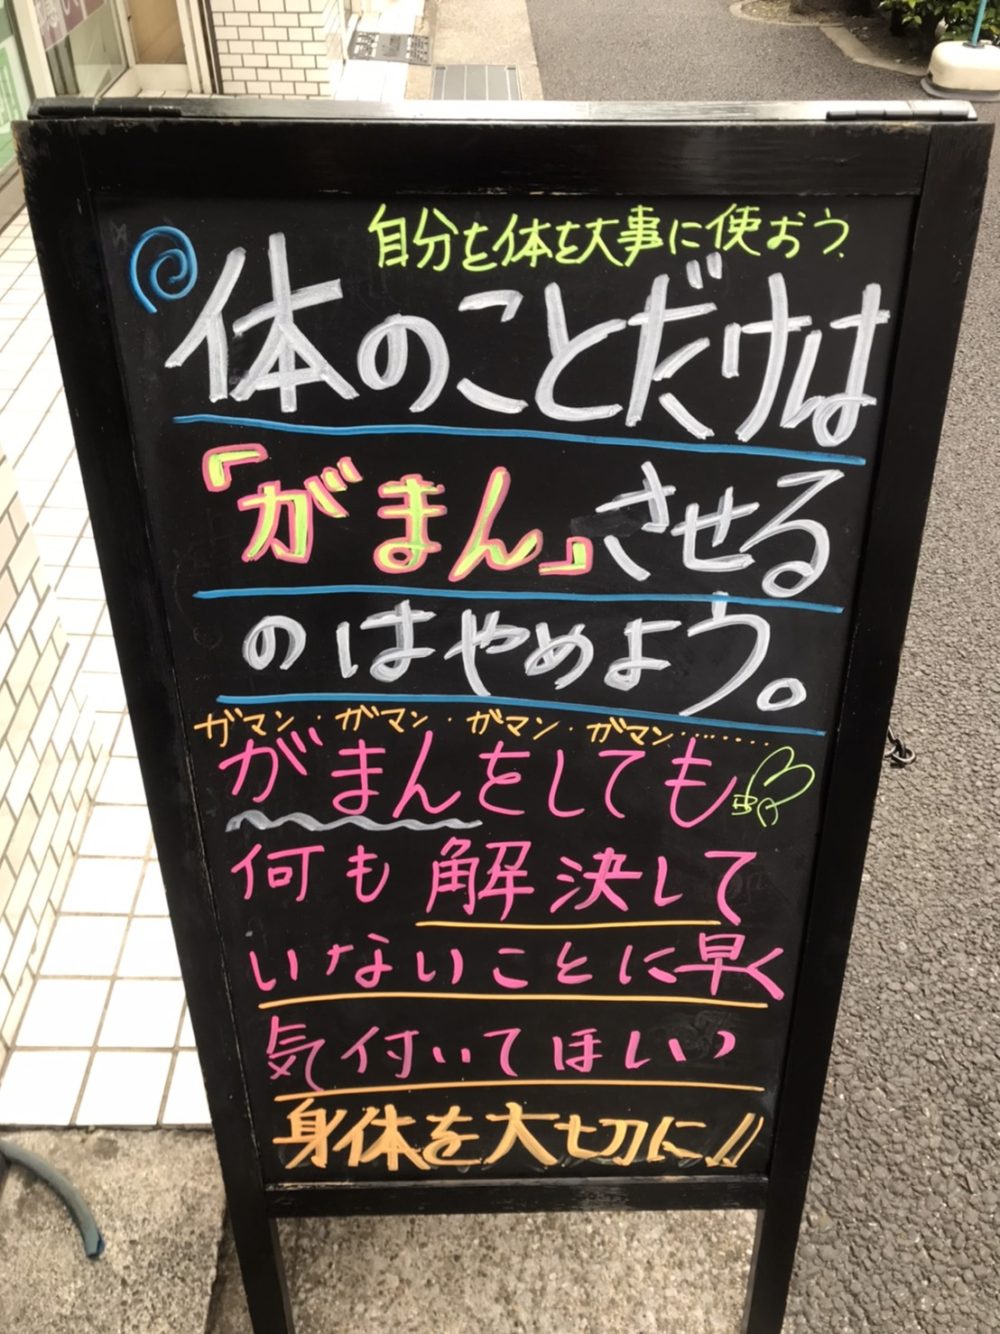 自分を体を大事に使おう.
体のことだけは
「がまん」させる
のはやめよう。
ガマン・ガマン・ガマン・ガマン・・・・・・・
がまんをしても
何も解決して
いないことに早く
気付いてほしい
身体を大切に!!